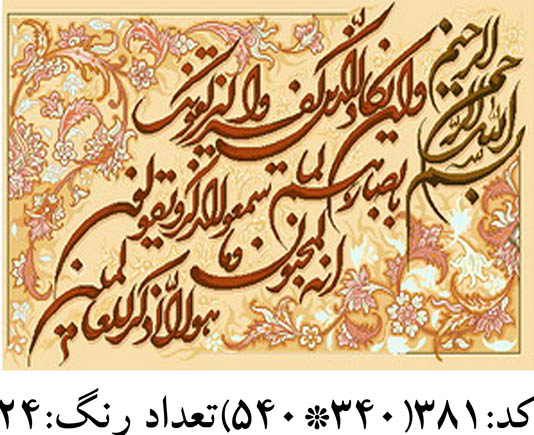 بسم الله الرحمن الرحیم
وان یکاد الذین کفروا لیزلقونک
بابصارهم لما سمعوا الذکر ویقولون
انه لمجنون وما
هو الا ذکر للعالمین
کد:۳۸۱(۳۴۰*۵۴۰)تعداد رنگ:۲۴